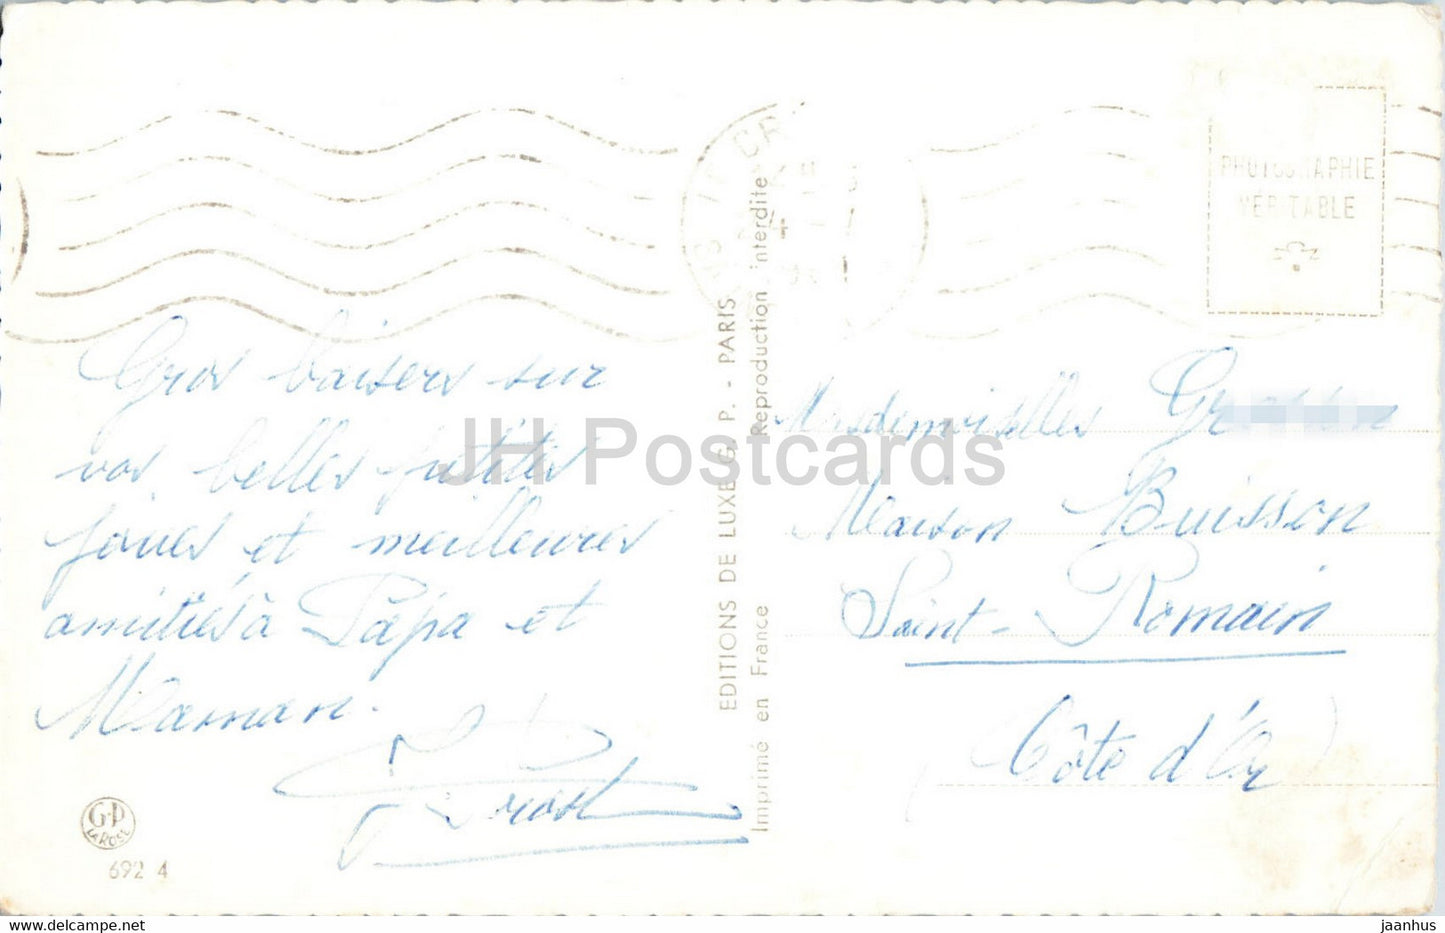 Gros baisers sur
vos belles petites
joues et meilleures
amitiés à Papa et
Maman.
G.P
LA ROSE
692 4
EDITIONS DE LUXE G. P. - PARIS
Reproduction interdite
Imprimé en France
PHOTOGRAPHIE
VÉRITABLE
Mesdemoiselles
Maison Buisson
Saint-Romain
Côte d'Or
JH Postcards
www.delcampe.net
jaanhus